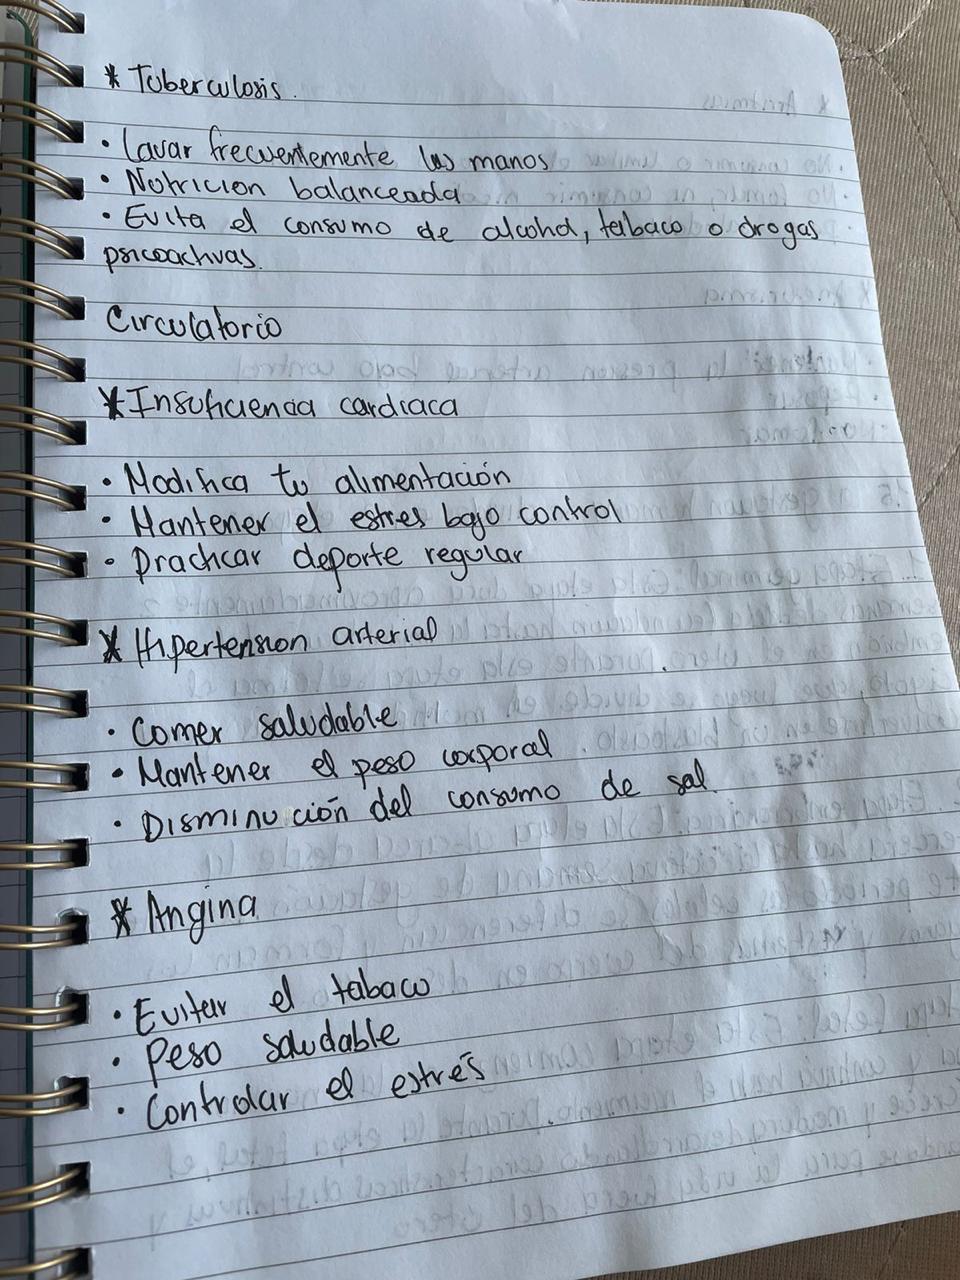 * Tuberculosis.
• Lavar frecuentemente las manos
• Nutricion balanceada
• Evita el consumo de alcohol, tabaco o drogas
psicoactivas.
Circulatorio
* Insuficiencia cardiaca
• Modifica tu alimentación
• Mantener el estres bajo control
• Practicar deporte regular
* Hipertension arterial
• Comer saludable
• Mantener el peso corporal
• Disminución del consumo de sal
* Angina
• Evitar el tabaco
• Peso saludable
• Controlar el estrés